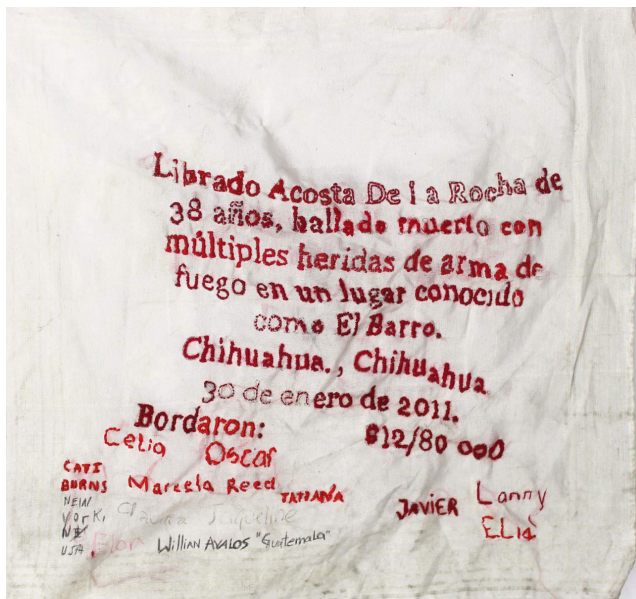 Librado Acosta De la Rocha de
38 años, hallado muerto con
múltiples heridas de arma de
fuego en un lugar conocido
como El Barro.
Chihuahua., Chihuahua
30 de enero de 2011.
Bordaron:
612/80 000
Celia Oscar
CATI
BURNS
Marcela Reed
TATIANA
JAVIER
Lanny
ELIA
NEW
YORK,
NY
USA
Claudia Jaqueline
Elor
Willian AVALOS "Guatemala"